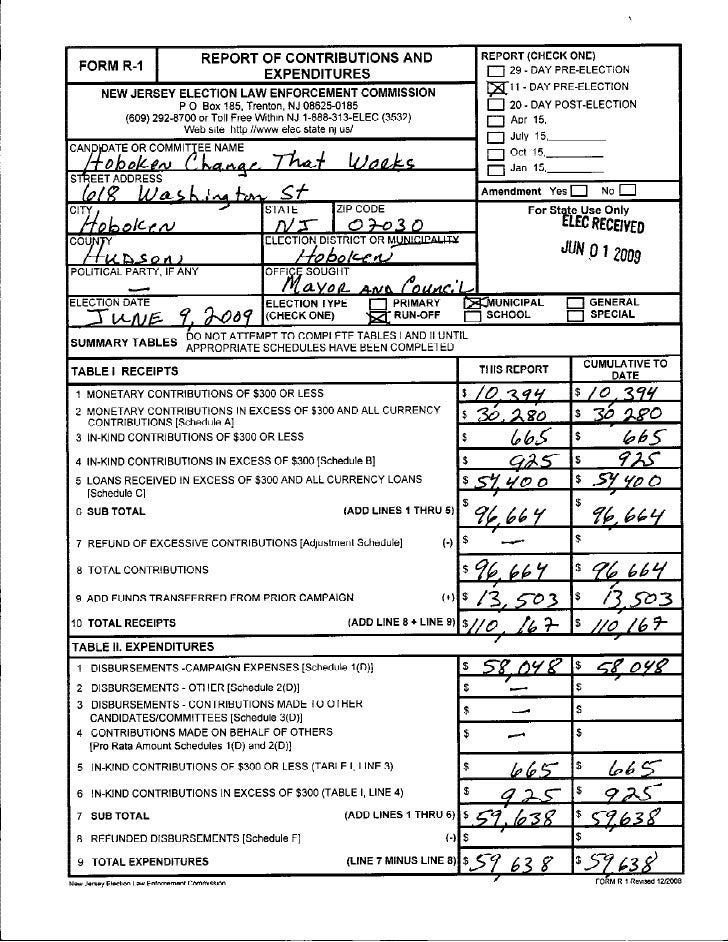 FORM R-1
REPORT OF CONTRIBUTIONS AND
EXPENDITURES
NEW JERSEY ELECTION LAW ENFORCEMENT COMMISSION
P O Box 185, Trenton, NJ 08625-0185
(609) 292-8700 or Toll Free Within NJ 1-888-313-ELEC (3532)
Web site http //www elec state nj us/
REPORT (CHECK ONE)
29 - DAY PRE-ELECTION
11 - DAY PRE-ELECTION
20 - DAY POST-ELECTION
Apr 15,
July 15,
Oct 15,
Jan 15,
Amendment Yes No
CANDIDATE OR COMMITTEE NAME
Hoboken Change That Works
STREET ADDRESS
618 Washington St
CITY STATE ZIP CODE
Hoboken NJ 07030
For State Use Only
ELEC RECEIVED
JUN 01 2009
COUNTY ELECTION DISTRICT OR MUNICIPALITY
Hudson Hoboken
POLITICAL PARTY, IF ANY OFFICE SOUGHT
— Mayor AND Council
ELECTION DATE ELECTION TYPE PRIMARY MUNICIPAL GENERAL
JUNE 9, 2009 (CHECK ONE) RUN-OFF SCHOOL SPECIAL
SUMMARY TABLES DO NOT ATTEMPT TO COMPLETE TABLES I AND II UNTIL
APPROPRIATE SCHEDULES HAVE BEEN COMPLETED
TABLE I RECEIPTS THIS REPORT CUMULATIVE TO
DATE
1 MONETARY CONTRIBUTIONS OF $300 OR LESS $ 10,394 $ 10,394
2 MONETARY CONTRIBUTIONS IN EXCESS OF $300 AND ALL CURRENCY
CONTRIBUTIONS [Schedule A] $ 30,280 $ 30 280
3 IN-KIND CONTRIBUTIONS OF $300 OR LESS $ 665 $ 665
4 IN-KIND CONTRIBUTIONS IN EXCESS OF $300 [Schedule B] $ 925 $ 925
5 LOANS RECEIVED IN EXCESS OF $300 AND ALL CURRENCY LOANS
[Schedule C] $ 54,400 $ 54 400
6 SUB TOTAL (ADD LINES 1 THRU 5) $ 96,664 $ 96,664
7 REFUND OF EXCESSIVE CONTRIBUTIONS [Adjustment Schedule] (-) $ — $
8 TOTAL CONTRIBUTIONS $ 96,664 $ 96 664
9 ADD FUNDS TRANSFERRED FROM PRIOR CAMPAIGN (+) $ 13,503 $ 13,503
10 TOTAL RECEIPTS (ADD LINE 8 + LINE 9) $ 110,167 $ 110 167
TABLE II. EXPENDITURES
1 DISBURSEMENTS -CAMPAIGN EXPENSES [Schedule 1(D)] $ 58,048 $ 58,048
2 DISBURSEMENTS - OTHER [Schedule 2(D)] $ — $
3 DISBURSEMENTS - CONTRIBUTIONS MADE TO OTHER
CANDIDATES/COMMITTEES [Schedule 3(D)] $ — $
4 CONTRIBUTIONS MADE ON BEHALF OF OTHERS
[Pro Rata Amount Schedules 1(D) and 2(D)] $ — $
5 IN-KIND CONTRIBUTIONS OF $300 OR LESS (TABLE I, LINE 3) $ 665 $ 665
6 IN-KIND CONTRIBUTIONS IN EXCESS OF $300 (TABLE I, LINE 4) $ 925 $ 925
7 SUB TOTAL (ADD LINES 1 THRU 6) $ 59,638 $ 59,638
8 REFUNDED DISBURSEMENTS [Schedule F] (-) $ $
9 TOTAL EXPENDITURES (LINE 7 MINUS LINE 8) $ 59,638 $ 59,638
New Jersey Election Law Enforcement Commission FORM R 1 Revised 12/2008